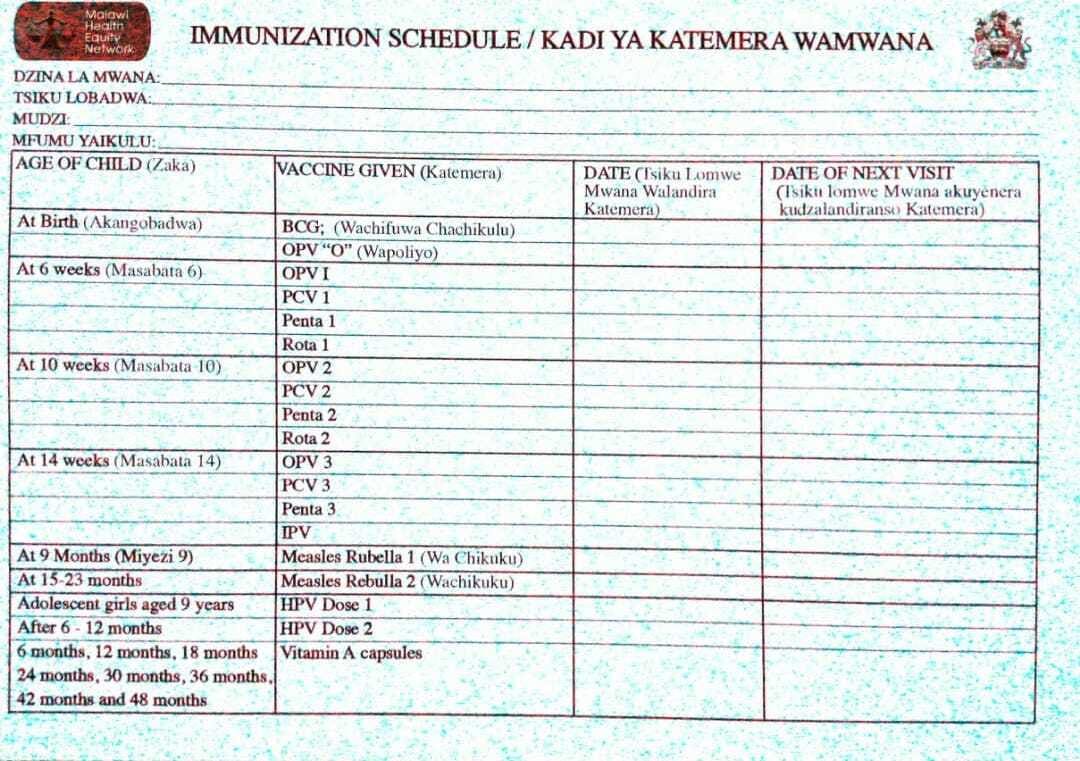 Malawi
Health
Equity
Network
IMMUNIZATION SCHEDULE / KADI YA KATEMERA WAMWANA
DZINA LA MWANA:
TSIKU LOBADWA:
MUDZI:
MFUMU YAIKULU:
AGE OF CHILD (Zaka) VACCINE GIVEN (Katemera) DATE (Tsiku Lomwe Mwana Walandira Katemera) DATE OF NEXT VISIT (Tsiku lomwe Mwana akuyenera kudzalandiranso Katemera)
At Birth (Akangobadwa) BCG; (Wachifuwa Chachikulu)
OPV “O” (Wapoliyo)
At 6 weeks (Masabata 6) OPV I
PCV 1
Penta 1
Rota 1
At 10 weeks (Masabata 10) OPV 2
PCV 2
Penta 2
Rota 2
At 14 weeks (Masabata 14) OPV 3
PCV 3
Penta 3
IPV
At 9 Months (Miyezi 9) Measles Rubella 1 (Wa Chikuku)
At 15-23 months Measles Rebulla 2 (Wachikuku)
Adolescent girls aged 9 years HPV Dose 1
After 6 - 12 months HPV Dose 2
6 months, 12 months, 18 months Vitamin A capsules
24 months, 30 months, 36 months,
42 months and 48 months